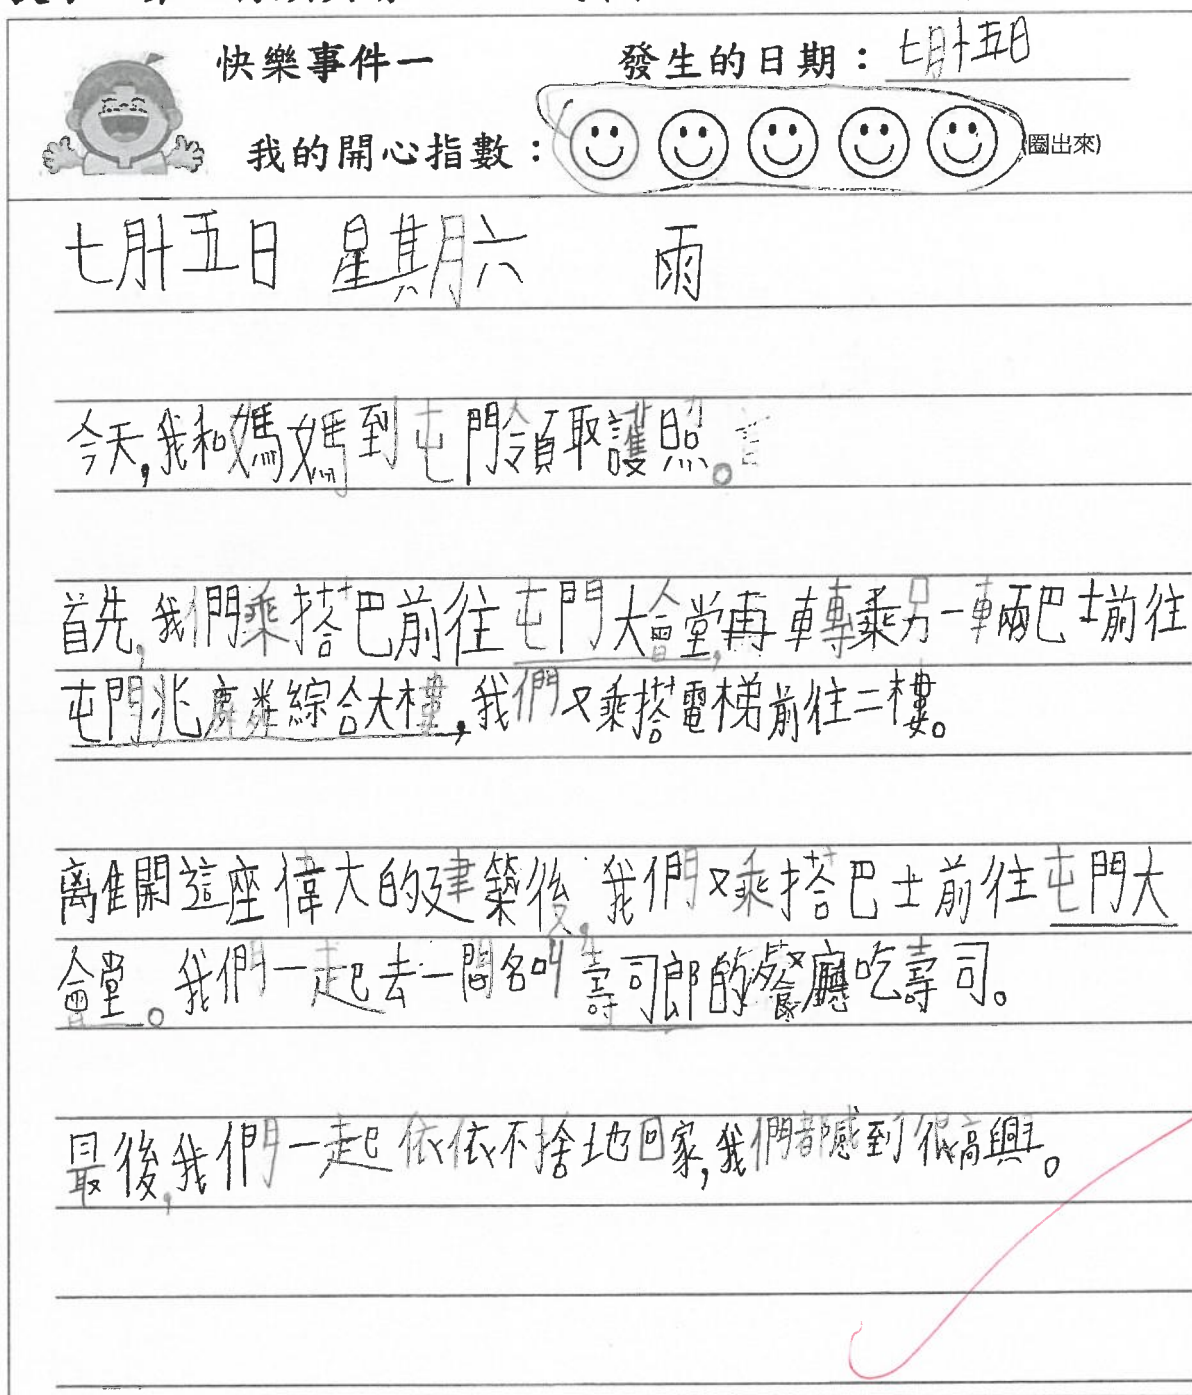 快樂事件一 發生的日期：七月十五日
我的開心指數： (圈出來)
七月十五日 星期六 雨
今天,我和媽媽到屯門領取護照。
首先,我們乘搭巴前往屯門大會堂,再轉乘另一輛巴士前往
屯門兆麟綜合大樓,我們又乘搭電梯前往二樓。
離開這座偉大的建築後,我們又乘搭巴士前往屯門大
會堂。我們一起去一間名叫壽司郎的餐廳吃壽司。
最後,我們一起依依不捨地回家,我們都感到很高興。